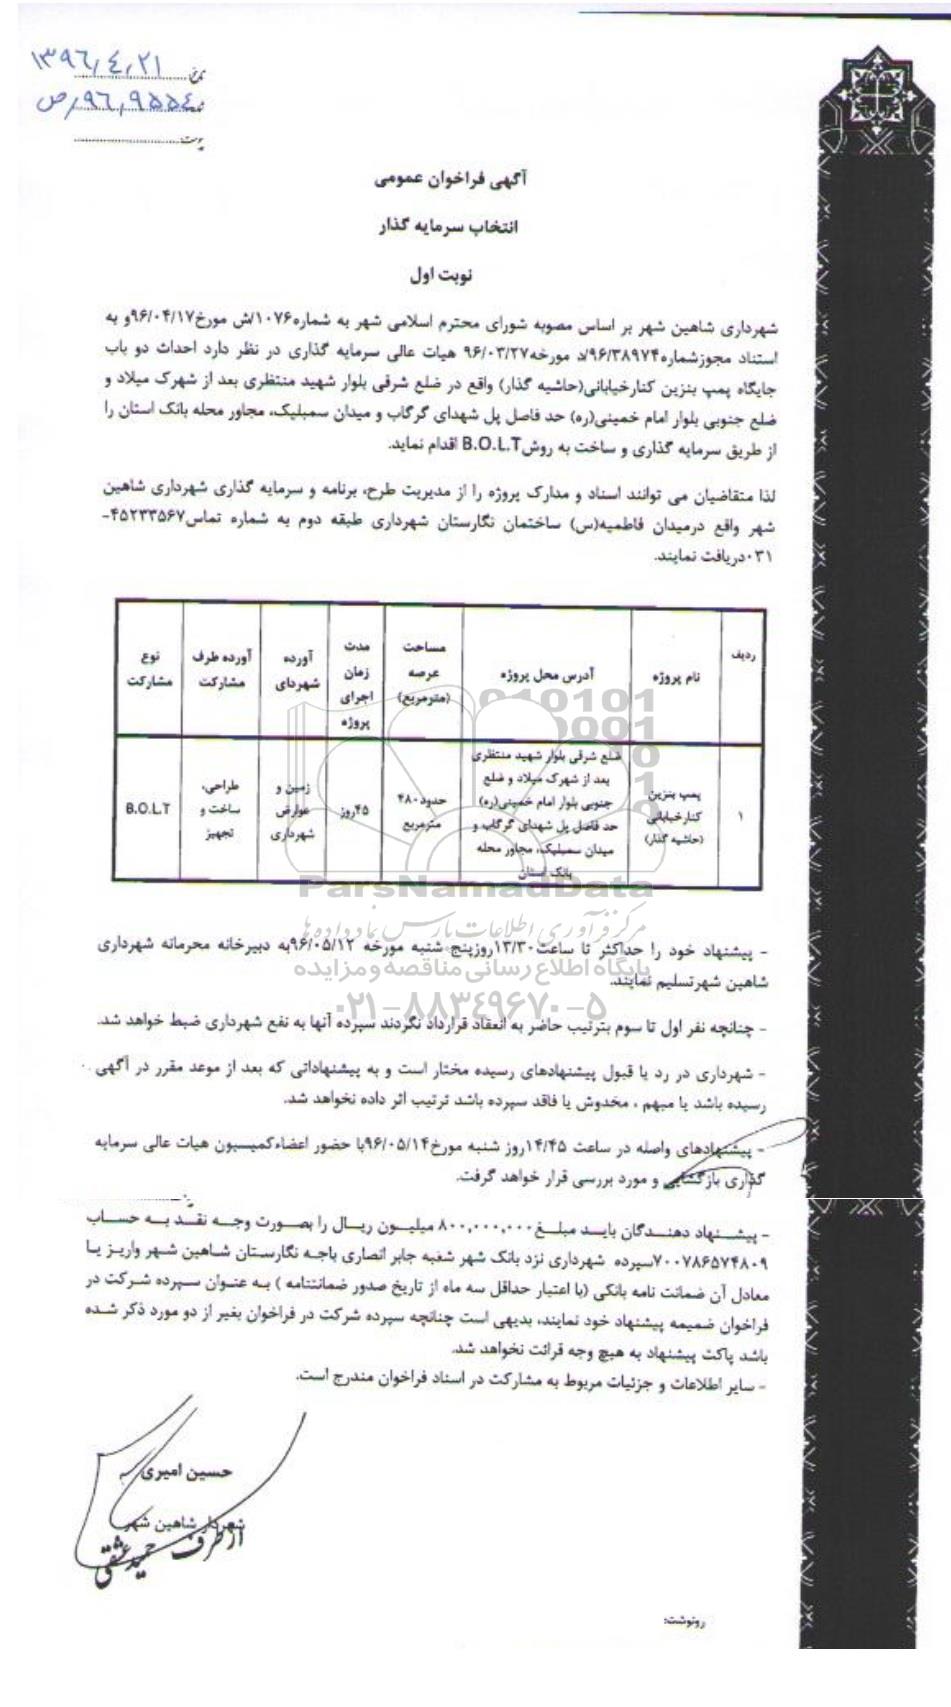 تاریخ ۱۳۹۶/۴/۲۱
۹۶/۹۵۵۴/ص
پیوست
آگهی فراخوان عمومی
انتخاب سرمایه گذار
نوبت اول
شهرداری شاهین شهر بر اساس مصوبه شورای محترم اسلامی شهر به شماره۱۰۷۶/ش مورخ۹۶/۰۴/۱۷و به
استناد مجوزشماره۹۶/۳۸۹۷۴/د مورخه۹۶/۰۳/۲۷ هیات عالی سرمایه گذاری در نظر دارد احداث دو باب
جایگاه پمپ بنزین کنارخیابانی(حاشیه گذار) واقع در ضلع شرقی بلوار شهید منتظری بعد از شهرک میلاد و
ضلع جنوبی بلوار امام خمینی(ره) حد فاصل پل شهدای گرگاب و میدان سمبلیک، مجاور محله بانک استان را
از طریق سرمایه گذاری و ساخت به روشB.O.L.T اقدام نماید.
لذا متقاضیان می توانند اسناد و مدارک پروژه را از مدیریت طرح، برنامه و سرمایه گذاری شهرداری شاهین
شهر واقع درمیدان فاطمیه(س) ساختمان نگارستان شهرداری طبقه دوم به شماره تماس۴۵۲۳۳۵۶۷-
۰۳۱دریافت نمایند.
ردیف
نام پروژه
آدرس محل پروژه
مساحت
عرصه
(مترمربع)
مدت
زمان
اجرای
پروژه
آورده
شهردای
آورده طرف
مشارکت
نوع
مشارکت
۱
پمپ بنزین
کنارخیابانی
(حاشیه گذار)
ضلع شرقی بلوار شهید منتظری
بعد از شهرک میلاد و ضلع
جنوبی بلوار امام خمینی(ره)
حد فاصل پل شهدای گرگاب و
میدان سمبلیک، مجاور محله
بانک استان
حدود۴۸۰
مترمربع
۴۵روز
زمین و
عوارض
شهرداری
طراحی،
ساخت و
تجهیز
B.O.L.T
ParsNamadData
مرکز فرآوری اطلاعات پارس نماد داده ها
پایگاه اطلاع رسانی مناقصه و مزایده
۰۲۱-۸۸۳۴۹۶۷۰-۵
- پیشنهاد خود را حداکثر تا ساعت۱۳/۳۰روزپنج شنبه مورخه ۹۶/۰۵/۱۲به دبیرخانه محرمانه شهرداری
شاهین شهرتسلیم نمایند.
- چنانچه نفر اول تا سوم بترتیب حاضر به انعقاد قرارداد نگردند سپرده آنها به نفع شهرداری ضبط خواهد شد.
- شهرداری در رد یا قبول پیشنهادهای رسیده مختار است و به پیشنهاداتی که بعد از موعد مقرر در آگهی
رسیده باشد یا مبهم ، مخدوش یا فاقد سپرده باشد ترتیب اثر داده نخواهد شد.
- پیشنهادهای واصله در ساعت ۱۴/۴۵روز شنبه مورخ۹۶/۰۵/۱۴با حضور اعضاءکمیسیون هیات عالی سرمایه
گذاری بازگشایی و مورد بررسی قرار خواهد گرفت.
- پیشنهاد دهندگان باید مبلغ۸۰۰,۰۰۰,۰۰۰ میلیون ریال را بصورت وجه نقد به حساب
۷۰۰۷۸۶۵۷۴۸۰۹سپرده شهرداری نزد بانک شهر شعبه جابر انصاری باجه نگارستان شاهین شهر واریز یا
معادل آن ضمانت نامه بانکی (با اعتبار حداقل سه ماه از تاریخ صدور ضمانتنامه ) به عنوان سپرده شرکت در
فراخوان ضمیمه پیشنهاد خود نمایند، بدیهی است چنانچه سپرده شرکت در فراخوان بغیر از دو مورد ذکر شده
باشد پاکت پیشنهاد به هیچ وجه قرائت نخواهد شد.
- سایر اطلاعات و جزئیات مربوط به مشارکت در اسناد فراخوان مندرج است.
حسین امیری
شهردار شاهین شهر
از طرف حمید عشقی
رونوشت: